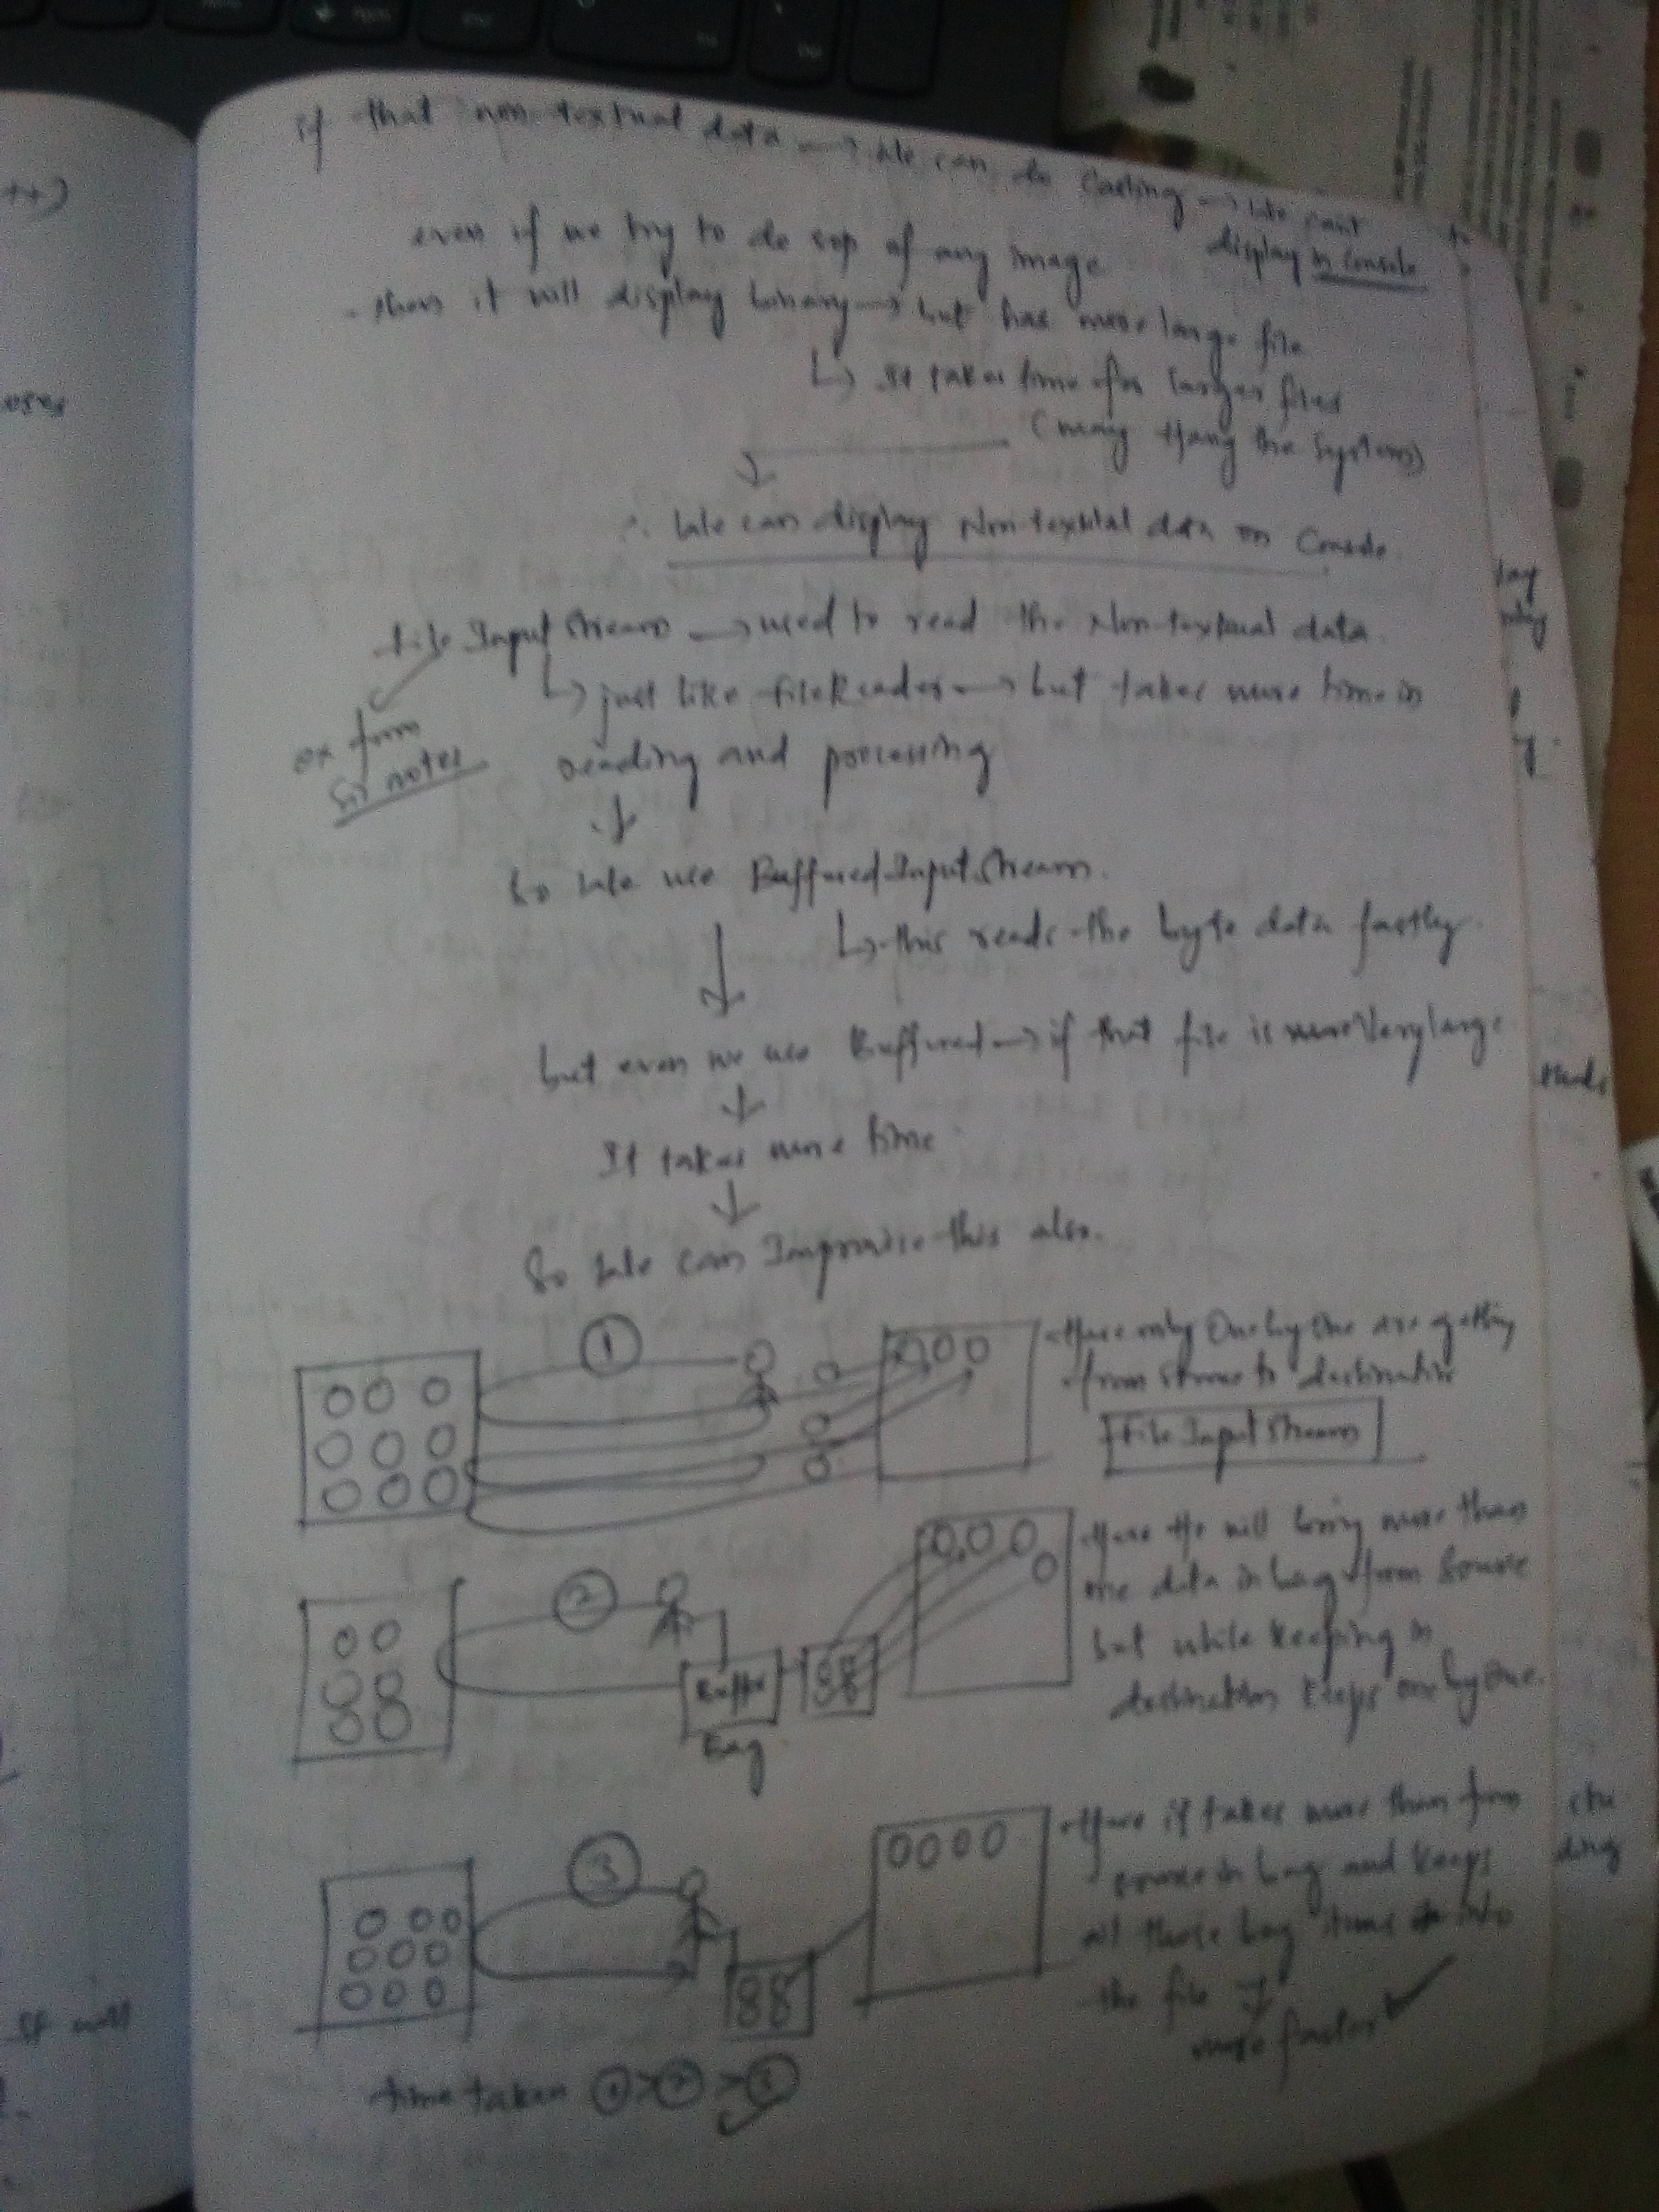 if that non-textual data → We can do Casting → We can't
display in console
even if we try to do sop of any image
then it will display binary → but has more large file
↳ It takes time for larger files
(may Hang the System)
∴ We can display Non-textual data on Console.
File InputStream → used to read the Non-textual data.
↳ just like fileReader → but takes more time in
reading and processing
ex from
Sir notes
So We use BufferedInputStream.
↳ this reads the byte data fastly.
but even we use Buffered → if that file is more/Very large
It takes more time
So We can Improvise this also.
1
Here only One by One are getting
from source to destination
File InputStream
2
Buffer
Bag
Here He will bring more than
one data in bag from Source
but while keeping in
destination keeps one by one.
3
Here it takes more than from
source in bag and keeps
all those bag items into
the file →
more faster ✓
time taken ① > ② > ③
++)
It will
ding